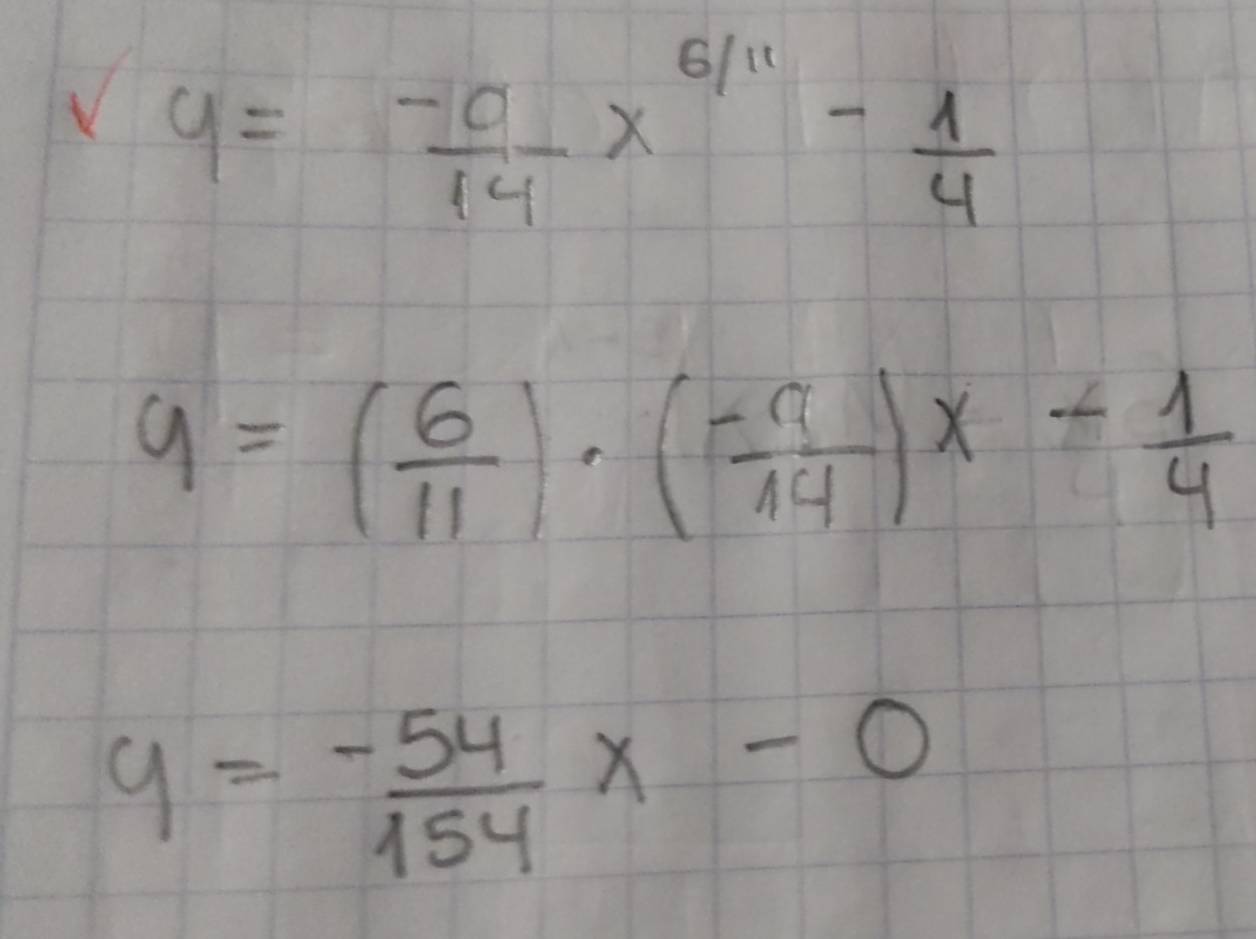 ✓ y = -9/14 x^6/11 - 1/4
y = (6/11) · (-9/14) x - 1/4
y = -54/154 x - 0